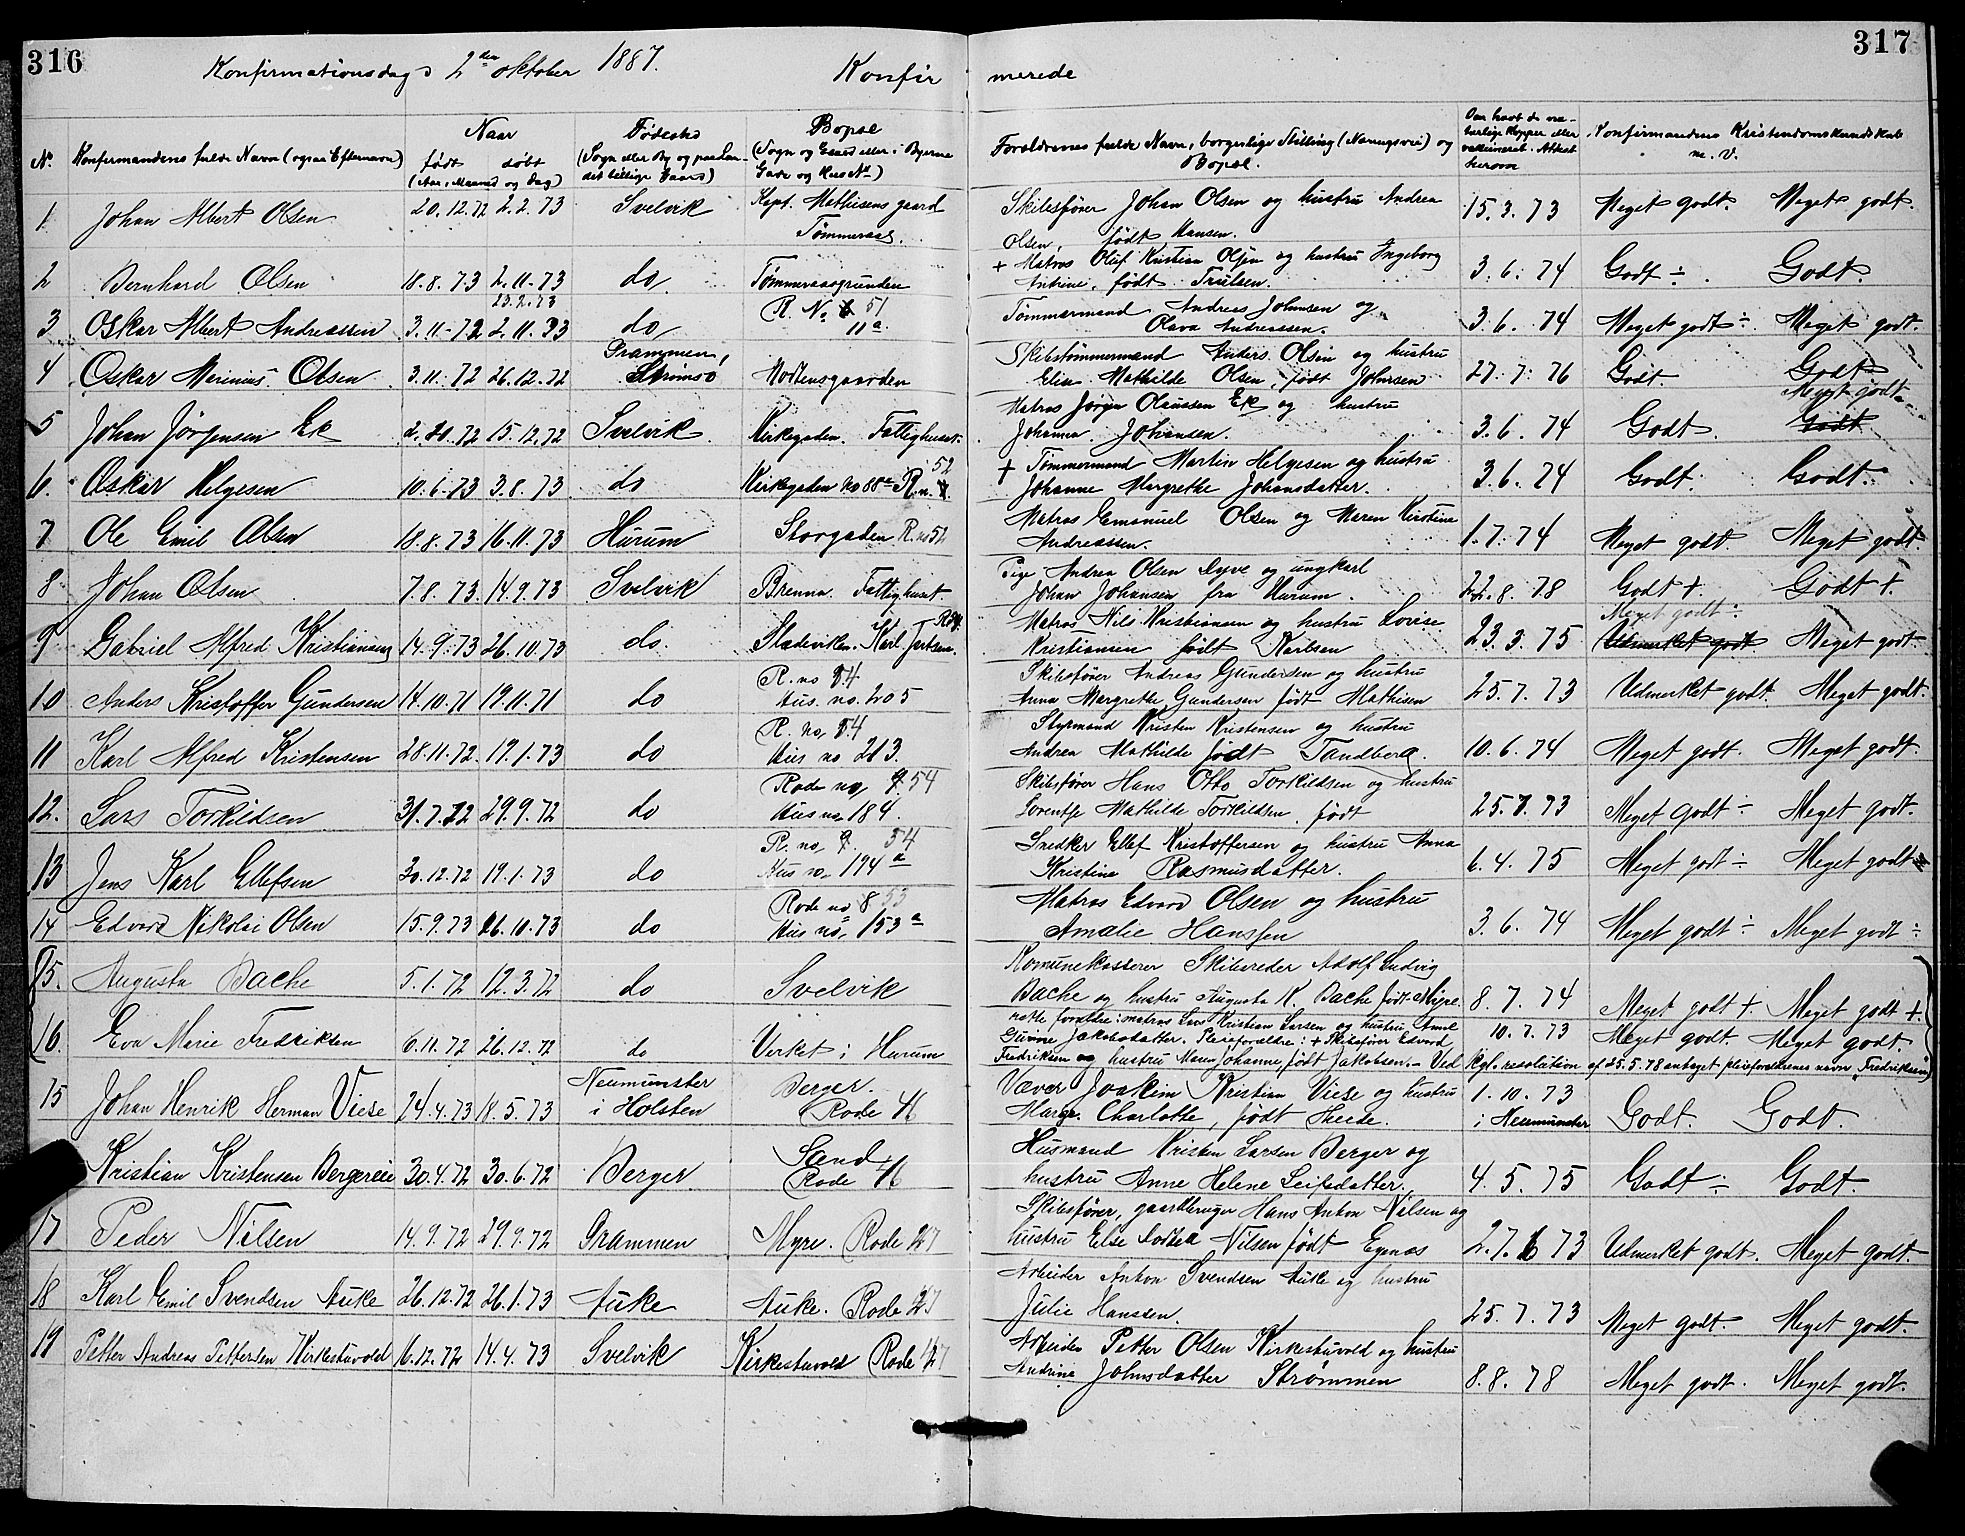 316 Konfirmationsdag 2den oktober 1887. Konfir merede 317
Nr. Konfirmandens fulde Navn (ogsaa Efternavn) Naar født døbt (Aar, Maaned og Dag) Fødested (Sogn eller By og paa Landet tillige Gaard) Bopæl (Sogn og Gaard eller i Byerne Gade og Hus No) Forældrenes fulde Navn, borgerlige Stilling (Næringsvei) og Bopæl. Om havt de naturlige Kopper eller vaksineret. Attest herom Konfirmandens Kristendomskundskab m. v.
1 Johan Albert Olsen 20.12.72 2.2.73 Svelvik Kapt. Mathisens gaard Tømmeraas. Skibsfører Johan Olsen og hustru Andrea Olsen, født Hansen. 15.3.73 Meget godt. Meget godt.
2 Bernhard Olsen 18.8.73 2.11.73 do Tømmeraasgrunden + Matros Oluf Kristian Olsen og hustru Ingeborg Antrine, født Trulsen. 3.6.74 Godt ÷. Godt.
3 Oskar Albert Andreassen 3.11.72 23.2.73 2.11.73 do R. No 51 11a. Tømmermand Andreas Johnsen og Olava Andreassen. 3.6.74 Meget godt ÷ Meget godt.
4 Oskar Marinius Olsen 3.11.72 26.12.72 Drammen, Strømsø Mortensgaarden Skibstømmermand Anders Olsen og hustru Elin Mathilde Olsen, født Johnsen 27.7.76 Godt. Godt
5 Johan Jørgensen Ek 2.10.72 15.12.72 Svelvik Kirkegaden. Fattighuset. Matros Jørgen Olaussen Ek og hustru Johanna Johansen. 3.6.74 Godt. Meget godt Godt
6. Oskar Helgesen 10.6.73 3.8.73 do Kirkegaden no 88a R.n. 52 + Tømmermand Martin Helgesen og hustru Johanne Margrethe Johansdatter. 3.6.74 Godt. Godt.
7 Ole Emil Olsen 18.8.73 16.11.73 Hurum Storgaden R. no 52 Matros Emanuel Olsen og Maren Kirstine Andreassen. 1.7.74 Meget godt. Meget godt
8 Johan Olsen 7.8.73 14.9.73 Svelvik Brenna. Fattighuset Pige Andrea Olsen Dyve og ungkarl Johan Johansen fra Hurum. 22.8.78 Godt +. Godt +.
9 Gabriel Alfred Kristiansen 14.9.73 26.10.73 do. Stadeviken. Karl Matros Nils Kristiansen og hustru Lovise Kristiansen født Karlsen 23.3.75 Meget godt ÷ Udmerket godt Meget godt.
10 Anders Kristoffer Gundersen 14.10.71 19.11.71 do R. no 54 Hus. no. 205 Skibsfører Andreas Gundersen og hustru Anna Margrethe Gundersen født Mathisen 25.7.73 Udmerket godt. Meget godt.
11 Karl Alfred Kristensen 28.11.72. 19.1.73 do R. no. 54 Hus no 213. Styrmand Kristen Kristensen og hustru Andrea Mathilde født Tandberg. 10.6.74 Meget godt. Meget godt.
12. Lars Torkildsen 31.7.72 29.9.72 do Rode no, 9.54 Hus no 184. Skibsfører Hans Otto Torkildsen og hustru Lorentse Mathilde Torkildsen, født 25.7.73 Meget godt ÷ Meget godt.
13 Jens Karl Ellefsen 30.12.72 19.1.73 do R. no, 9. 54 Hus no, 194a Snedker Ellef Kristoffersen og hustru Anna Kristine Rasmusdatter. 6.4.75 Meget godt ÷ Meget godt
14 Edvard Nikolai Olsen 15.9.73 26.10.73 do Rode no 8 53 Hus no, 153a Matros Edvard Olsen og hustru Amalie Hanssen 3.6.74 Meget godt ÷ Meget godt ÷
15. Augusta Bache 5.1.72 12.3.72 do Svelvik Komunekasserer Skibsreder Adolf Ludvig Bache og hustru Augusta K. Bache født Myre. 8.7.74 Meget godt +. Meget godt +.
16. Eva Marie Fredriksen 6.11.72 26.12.72 do Verket i Hurum rette forældre: matros Lars Kristian Larsen og hustru Anne Gurine Jakobsdatter. Pleieforældre: + Skibsfører Edvard Fredriksen og hustru Maren Johanne, født Jakobsen. – Ved kgl. resolution af 25.5.78 antaget pleieforældrenes navn "Fredriksen" 10.7.73 Meget godt. Meget godt.
15 Johan Henrik Herman Viese 24.4.73 18.5.73 Neumünster i Holsten Berger. Rode 46 Væver Joakim Kristian Viese og hustru Marga. Charlotte, født Heede. 1.10.73 i Neumünster Godt. Godt.
Kristian Kristensen Bergereie 30.4.72 30.6.72 Berger Sand Rode 46 Husmand Kristen Larsen Berger og hustru Anne Helene Leifsdatter. 4.5.75 Godt ÷ Godt.
17 Peder Nilsen 14.9.72 29.9.72 Drammen Myre. Rode 47 Skibsfører, gaardbruger Hans Anton Nilsen og hustru Else Nilsen født Eknæs 2.7.6 73 Udmerket godt. Meget godt.
18 Karl Emil Svendsen Auke 26.12.72 26.1.73 Auke Auke. Rode 47 Arbeider Anton Svendsen Auke og hustru Julie Hanssen. 25.7.73 Meget godt. Meget godt.
19 Petter Andreas Pettersen Kirkestuvold 16.12.72 14.4.73 Svelvik Kirkestuvold Rode 47 Arbeider Petter Olsen Kirkestuvold og hustru Andrine Johnsdatter Strømmen 8.8.78 Meget godt. Meget godt.